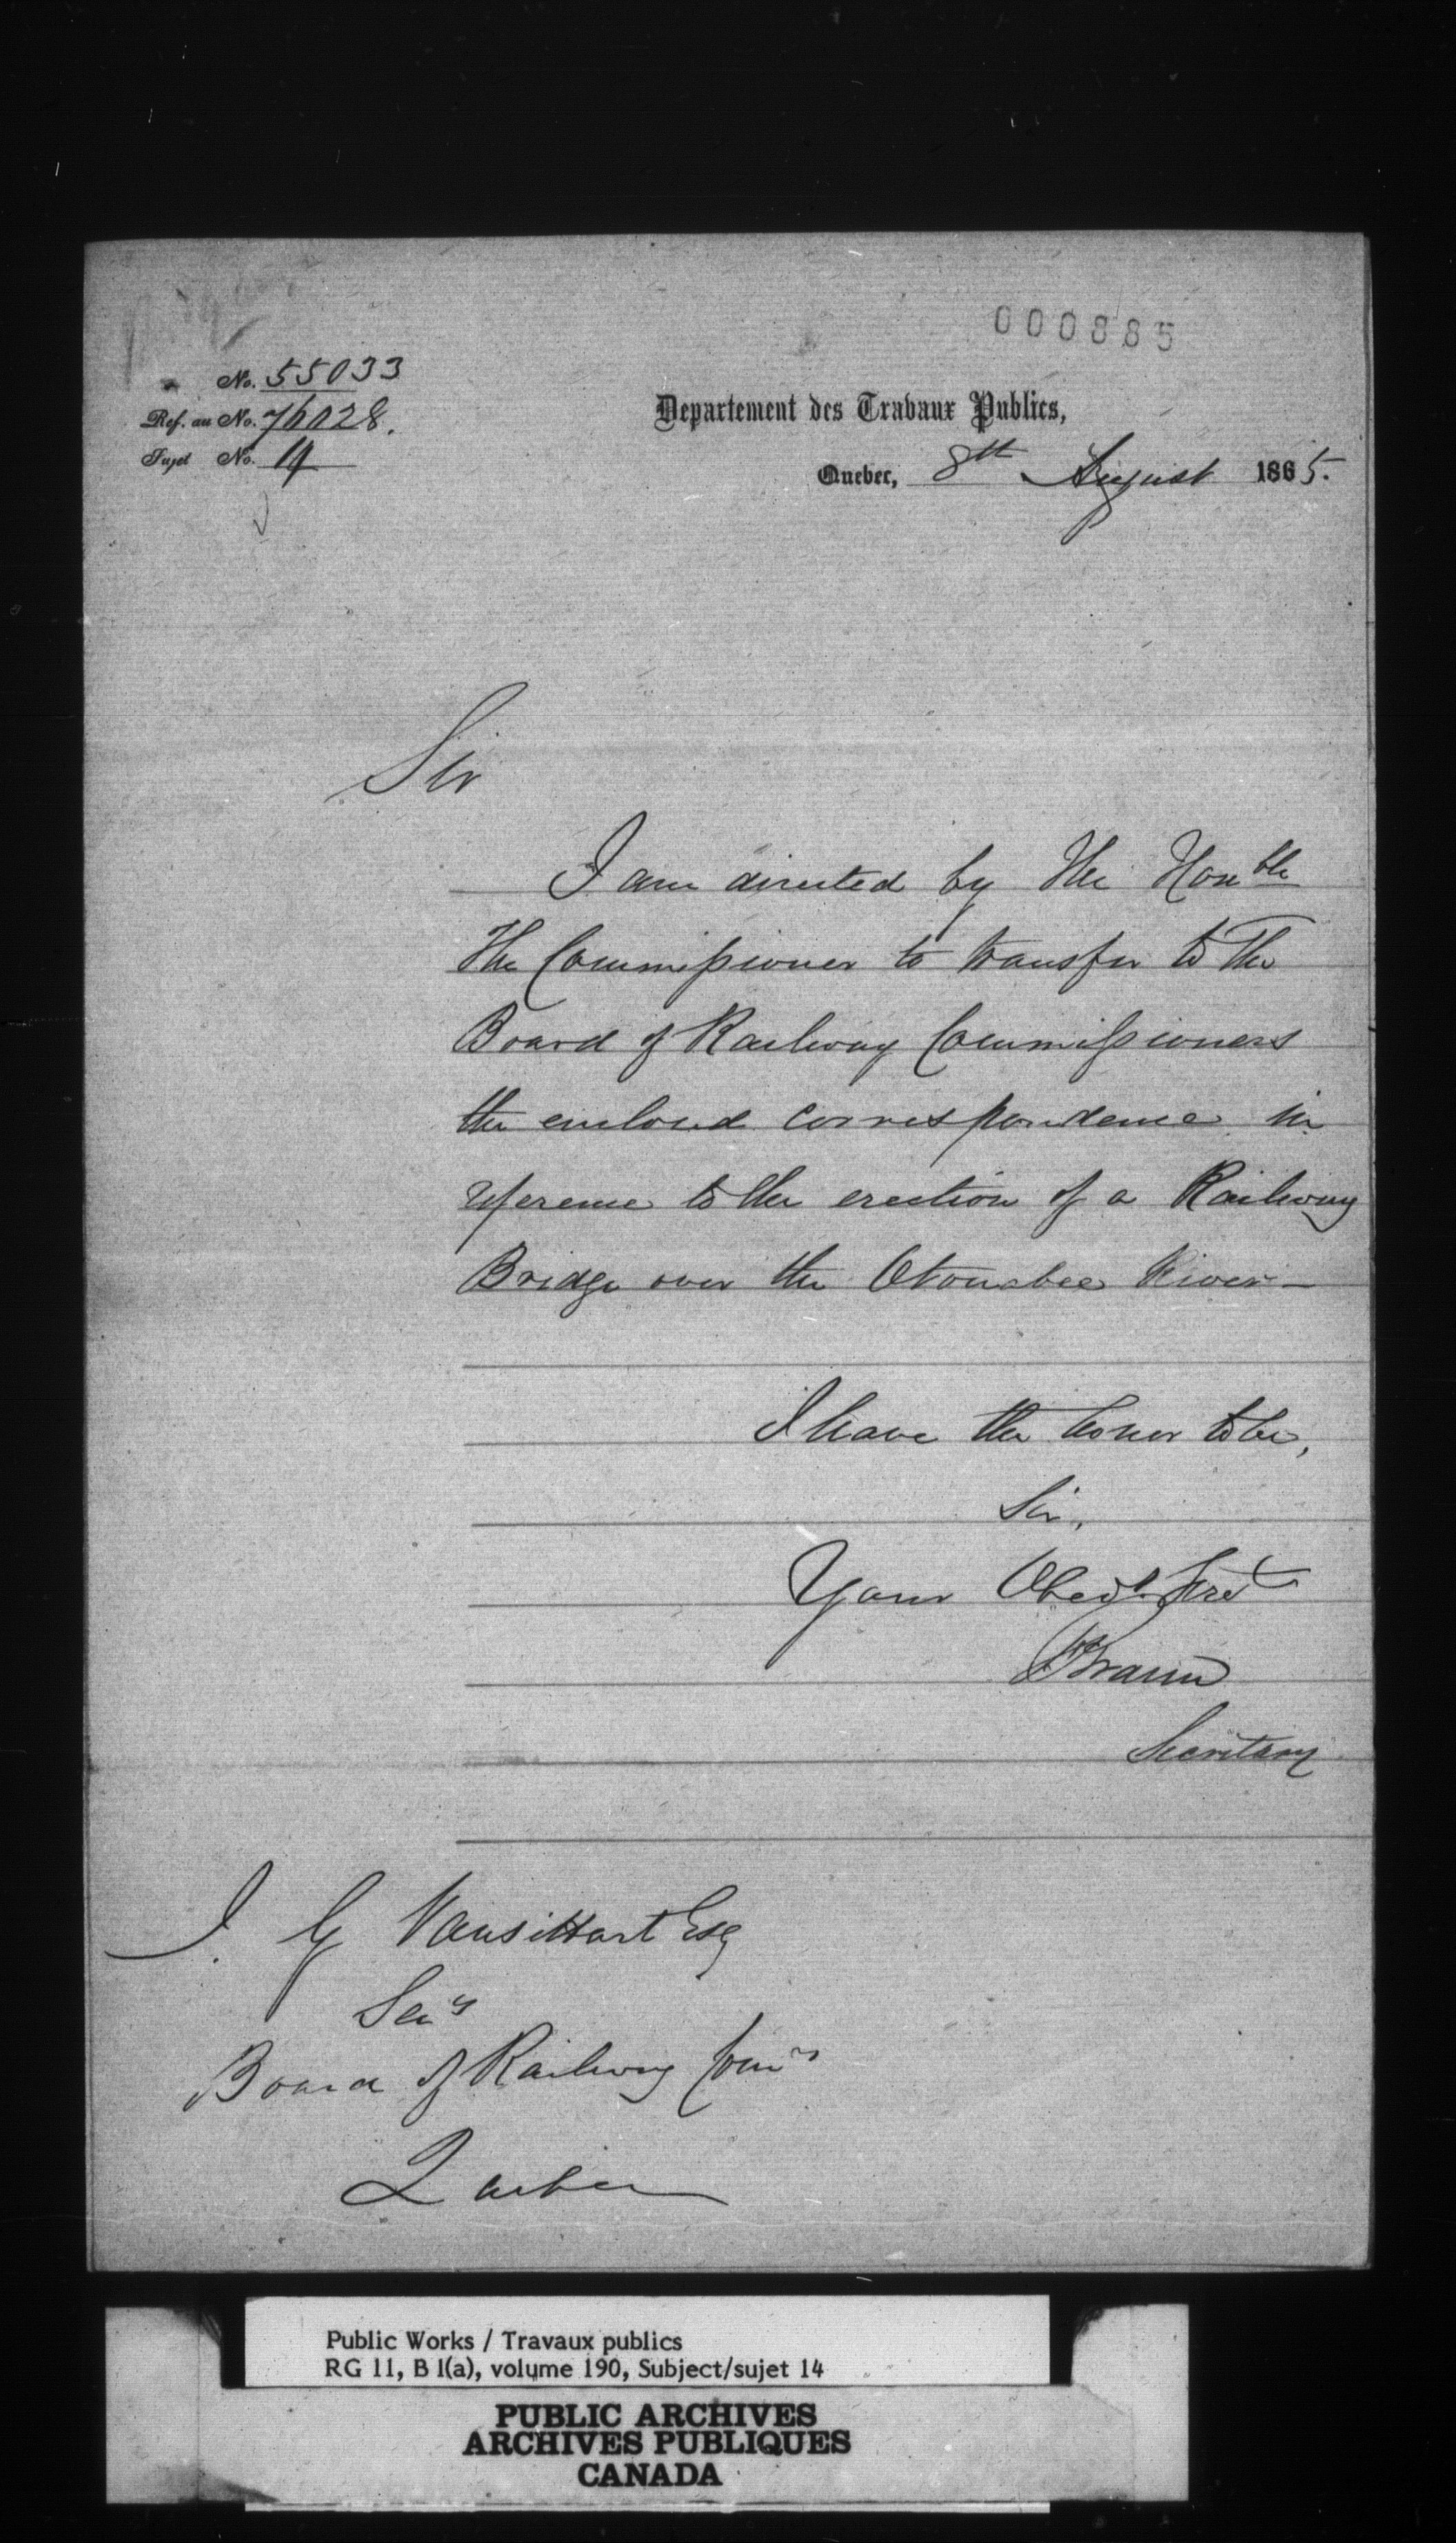 000885
No. 55033
Ref. au No. 76028.
Sujet No. 14
Departement des Travaux Publics,
Quebec, 8th August 1865.
Sir
I am directed by The Honble
The Commissioner to transfer to The
Board of Railway Commissioners
the enclosed correspondence in
reference to the erection of a Railway
Bridge over the Otonabee River—
I have the honor to be,
Sir,
Your Obedt. Servt
FBraun
Secretary
J. G Vansittart Esq
Secy
Board of Railway Comrs
Quebec
Public Works / Travaux publics
RG 11, B 1(a), volume 190, Subject/sujet 14
PUBLIC ARCHIVES
ARCHIVES PUBLIQUES
CANADA